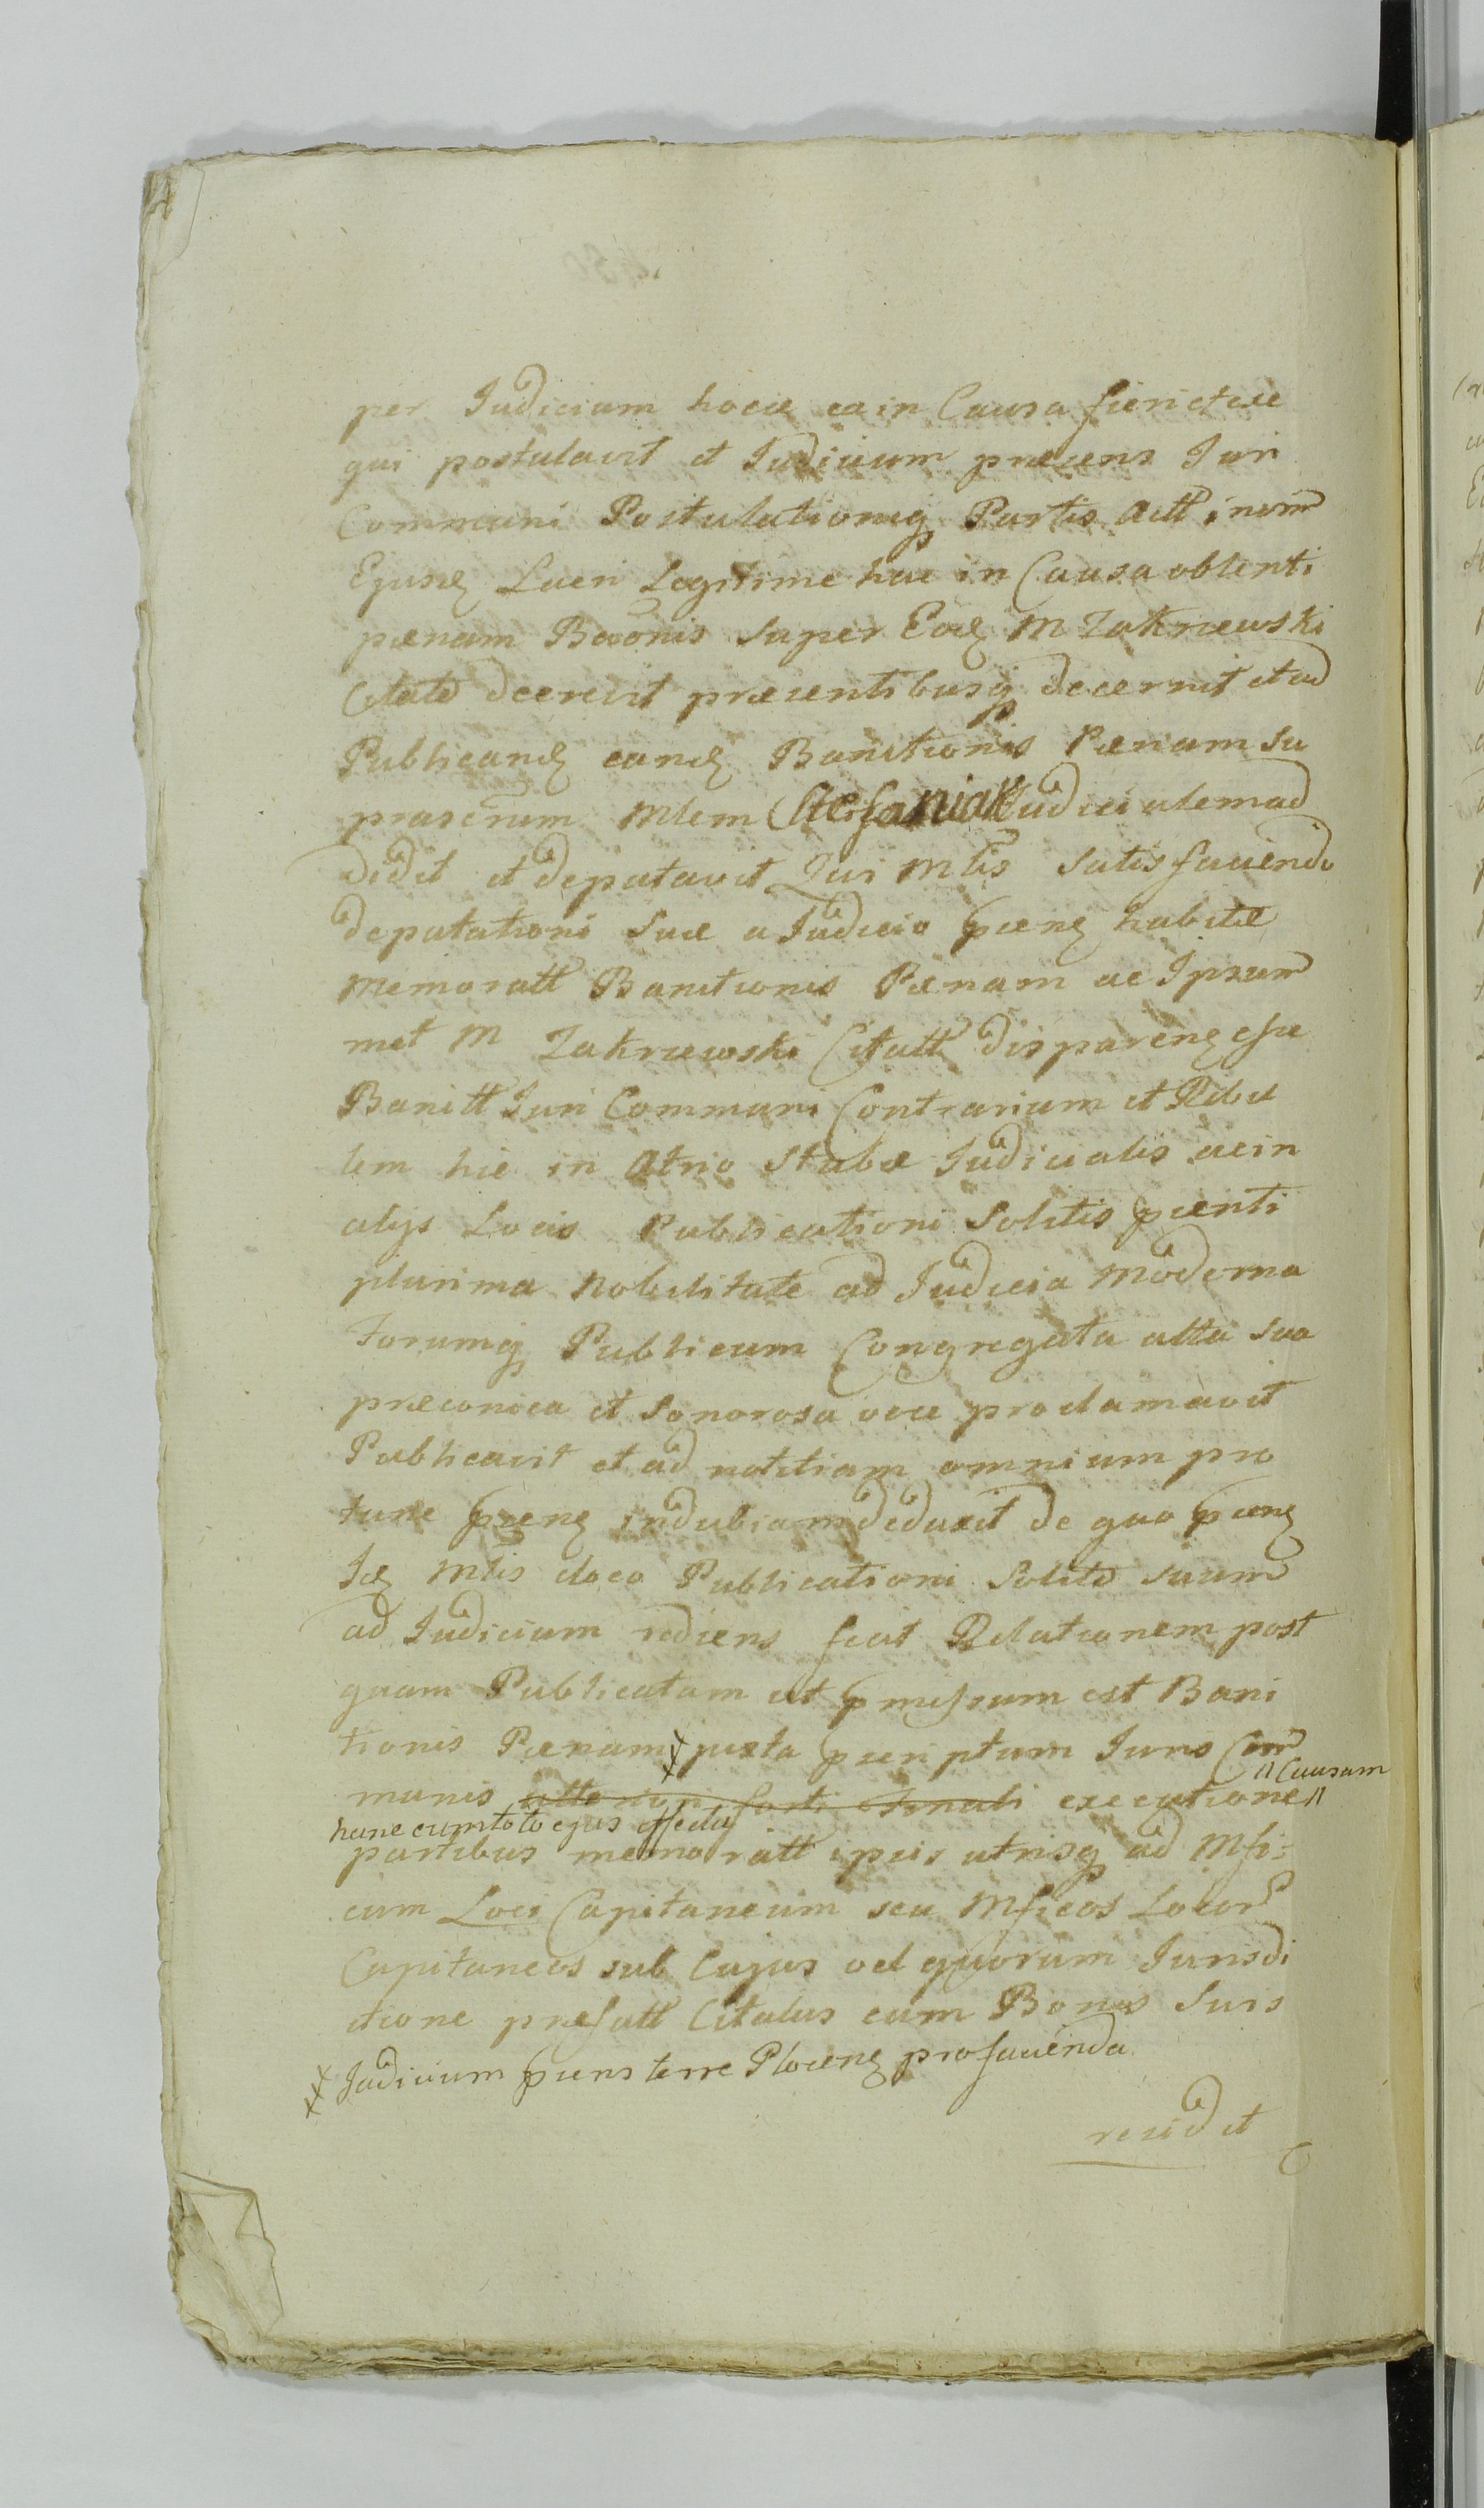 per Judicium hocce ea in Causa fieri et exe
qui postulavit et Judicium præsens Juri
Communi Postulationiq Partis Actt inim
Ejusq Lucri Legitime hac in Causa obtenti
pænam Baonis super Eoq M Zakrzewski
Citato decrevit præsentibusq decernit et ad
Publicandq eandq Banitionis Pænam su
prascrum Mlem Stefaniak Judicialem ad
didit et deputavit Qui Mlis satisfaciendo
deputationi suæ a Judicio præng habitæ
memoratt Banitionis Pænam ac Ipsum
met M Zakrzewski Citatt disparenq esse
Banitt Juri Communi Contrarium et Rebel
lem hic in Atrio Stubæ Judicialis ac in
alijs Locis Publicationi Solitis præsenti
plurima Nobilitate ad Judicia Moderna
Forumq Publicum Congregata alta sua
præconica et sonorosa voce proclamavit
Publicavit et ad notitiam omnium pro
tunc præng indubiam deduxit de quo præng
Iq Mlis a loco Publicationi Solito suum
ad Judicium rediens fecit Relationem post
quam Publicatam ut pmissum est Bani
tionis Pænam juxta præscriptum Juris Com
munis executione
"Causam
hanc cum toto ejus effectu
partibus memoratt ipsis utrisq ad Mfi:
cum Loci Capitaneum seu Mficos Locor
Capitaneos sub Cujus vel quorum Jurisdi
ctione præfatt Citatus cum Bonis Suis
Judicium præns terræ Plocenq profaciendo
residet